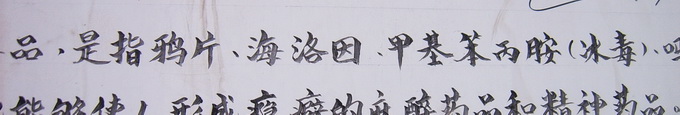 品，是指鸦片、海洛因、甲基苯丙胺(冰毒)、吗
能够使人形成瘾癖的麻醉药品和精神药品。